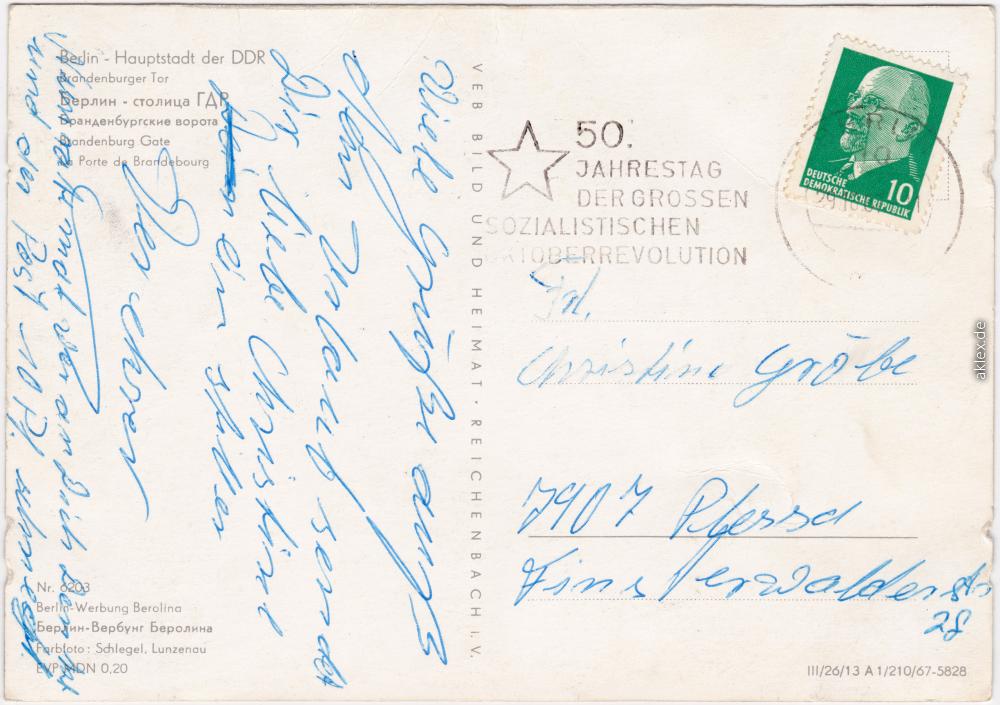 Berlin - Hauptstadt der DDR
Brandenburger Tor
Берлин - столица ГДР
Бранденбургские ворота
Brandenburg Gate
La Porte de Brandebourg
Viele Grüße aus
dem Urlaub sendet
Dir, liebe Christine
ein stiller
Verehrer
und der Post 10 Pf.
Nr. 6203
Berlin-Werbung Berolina
Берлин-Вербунг Беролина
Farbfoto: Schlegel, Lunzenau
EVP MDN 0,20
VEB BILD UND HEIMAT · REICHENBACH i. V.
50.
JAHRESTAG
DER GROSSEN
SOZIALISTISCHEN
OKTOBERREVOLUTION
DEUTSCHE
DEMOKRATISCHE REPUBLIK
10
Frl.
Christine Gröbe
7907 Plessa
Finsterwalder str
28
III/26/13 A 1/210/67-5828
aklex.de